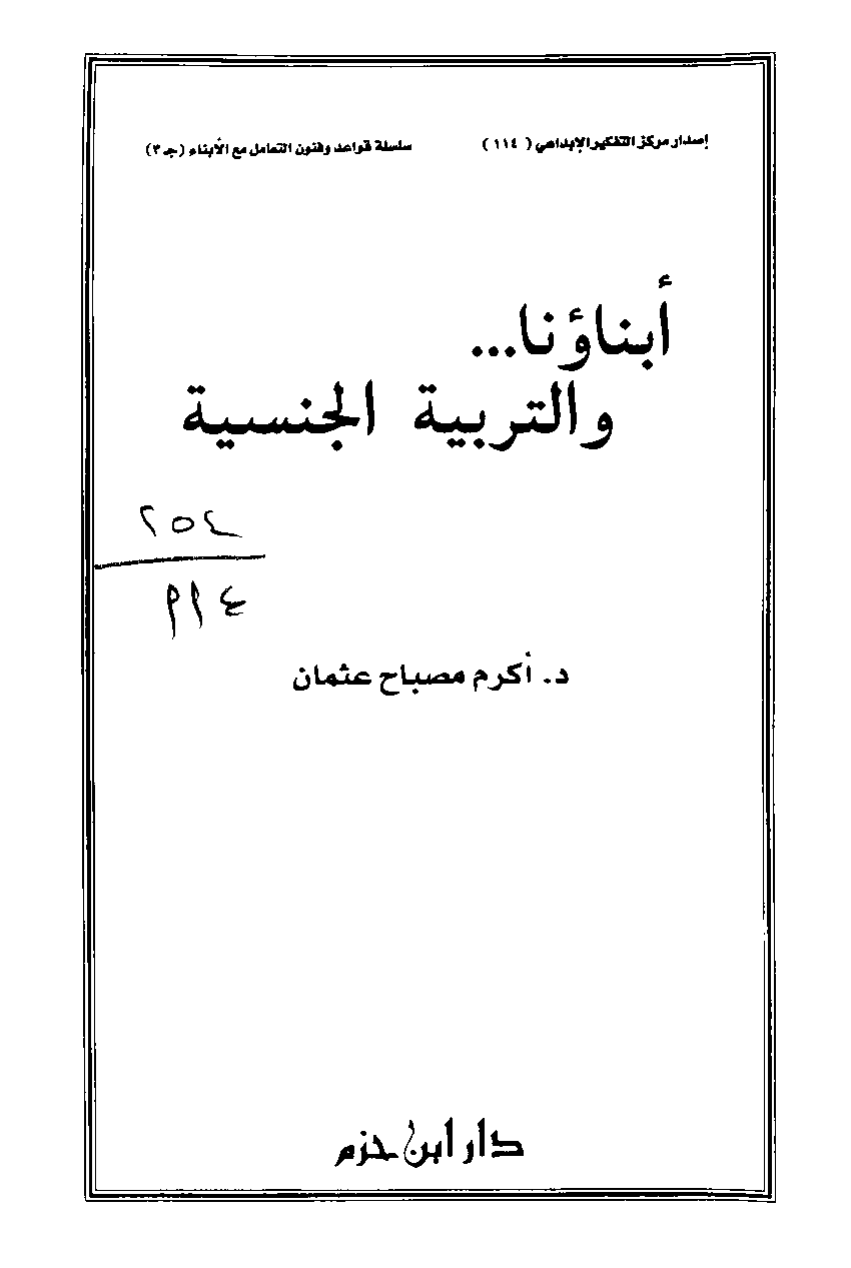 إصدار مركز التفكير الإبداعي ( ١١٤ )
سلسلة قواعد وفنون التعامل مع الأبناء (جـ ٣)
أبناؤنا...
والتربية الجنسية
٢٥٤
د. أكرم مصباح عثمان
دار ابن حزم